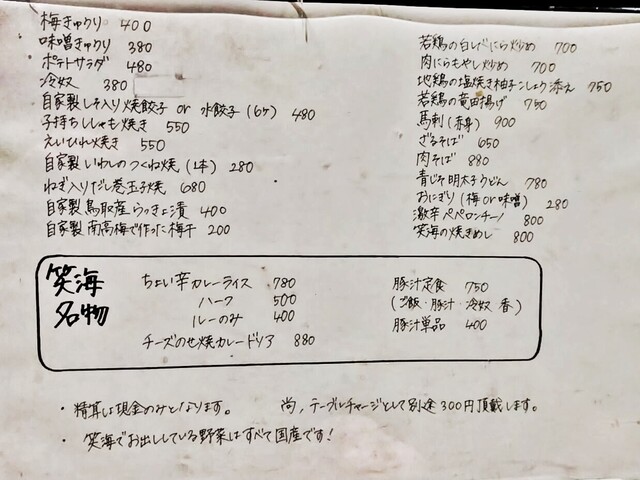 梅きゅうり 400
味噌きゅうり 380
ポテトサラダ 480
冷奴 380
自家製しそ入り焼餃子 or 水餃子 (6ヶ) 480
子持ちししゃも焼き 550
えいひれ焼き 550
自家製いわしのつくね焼 (1本) 280
ねぎ入りだし巻玉子焼 680
自家製鳥取産らっきょ漬 400
自家製南高梅で作った梅干 200
若鶏の白レバにら炒め 700
肉にらもやし炒め 700
地鶏の塩焼き柚子こしょう添え 750
若鶏の竜田揚げ 750
馬刺 (赤身) 900
ざるそば 650
肉そば 880
青じそ明太子うどん 780
おにぎり (梅or味噌) 280
激辛ペペロンチーノ 800
笑海の焼きめし 800
笑海名物
ちょい辛カレーライス 780
ハーフ 500
ルーのみ 400
チーズのせ焼カレードリア 880
豚汁定食 750
(ご飯・豚汁・冷奴 香)
豚汁単品 400
・精算は現金のみとなります。 尚、テーブルチャージとして別途300円頂戴します。
・笑海でお出ししている野菜はすべて国産です!